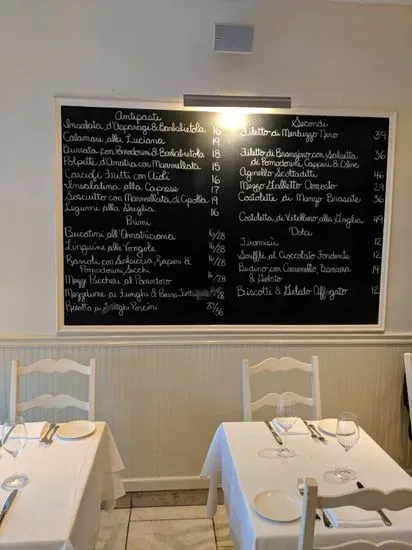 Antipasti
Insalata d'Asparagi & Barbabietola 16
Calamari alla Luciana 19
Burrata con Pomodorini & Barbabietola 18
Polpette d'Anatra con Marmellata 15
Carciofi Fritti con Aioli 16
Insalatina alla Caprese 17
Prosciutto con Marmellata di Cipolla 19
Legumi alla Griglia 16
Primi
Bucatini all'Amatriciana 16/28
Linguine alle Vongole 16/28
Ravioli con Salsiccia, Rapini & 16/28
Pomodorini Secchi
Mezzi Paccheri al Pomodoro 16/28
Mezzelune ai Funghi & 16/28
Risotto ai Funghi Porcini 20/36
Secondi
Filetto di Merluzzo Nero 39
Filetto di Branzino con Salsetta 36
di Pomodorini, Capperi & Olive
Agnello Scottaditti 46
Mezzo Galletto Arrosto 29
Costolette di Manzo Brasate 36
Costoletta di Vitellino alla Griglia 49
Dolci
Tiramisù 12
Soufflé al Cioccolato Fondente 12
Budino con Caramello, Banana 14
& Gelato
Biscotti & Gelato Affogato 12